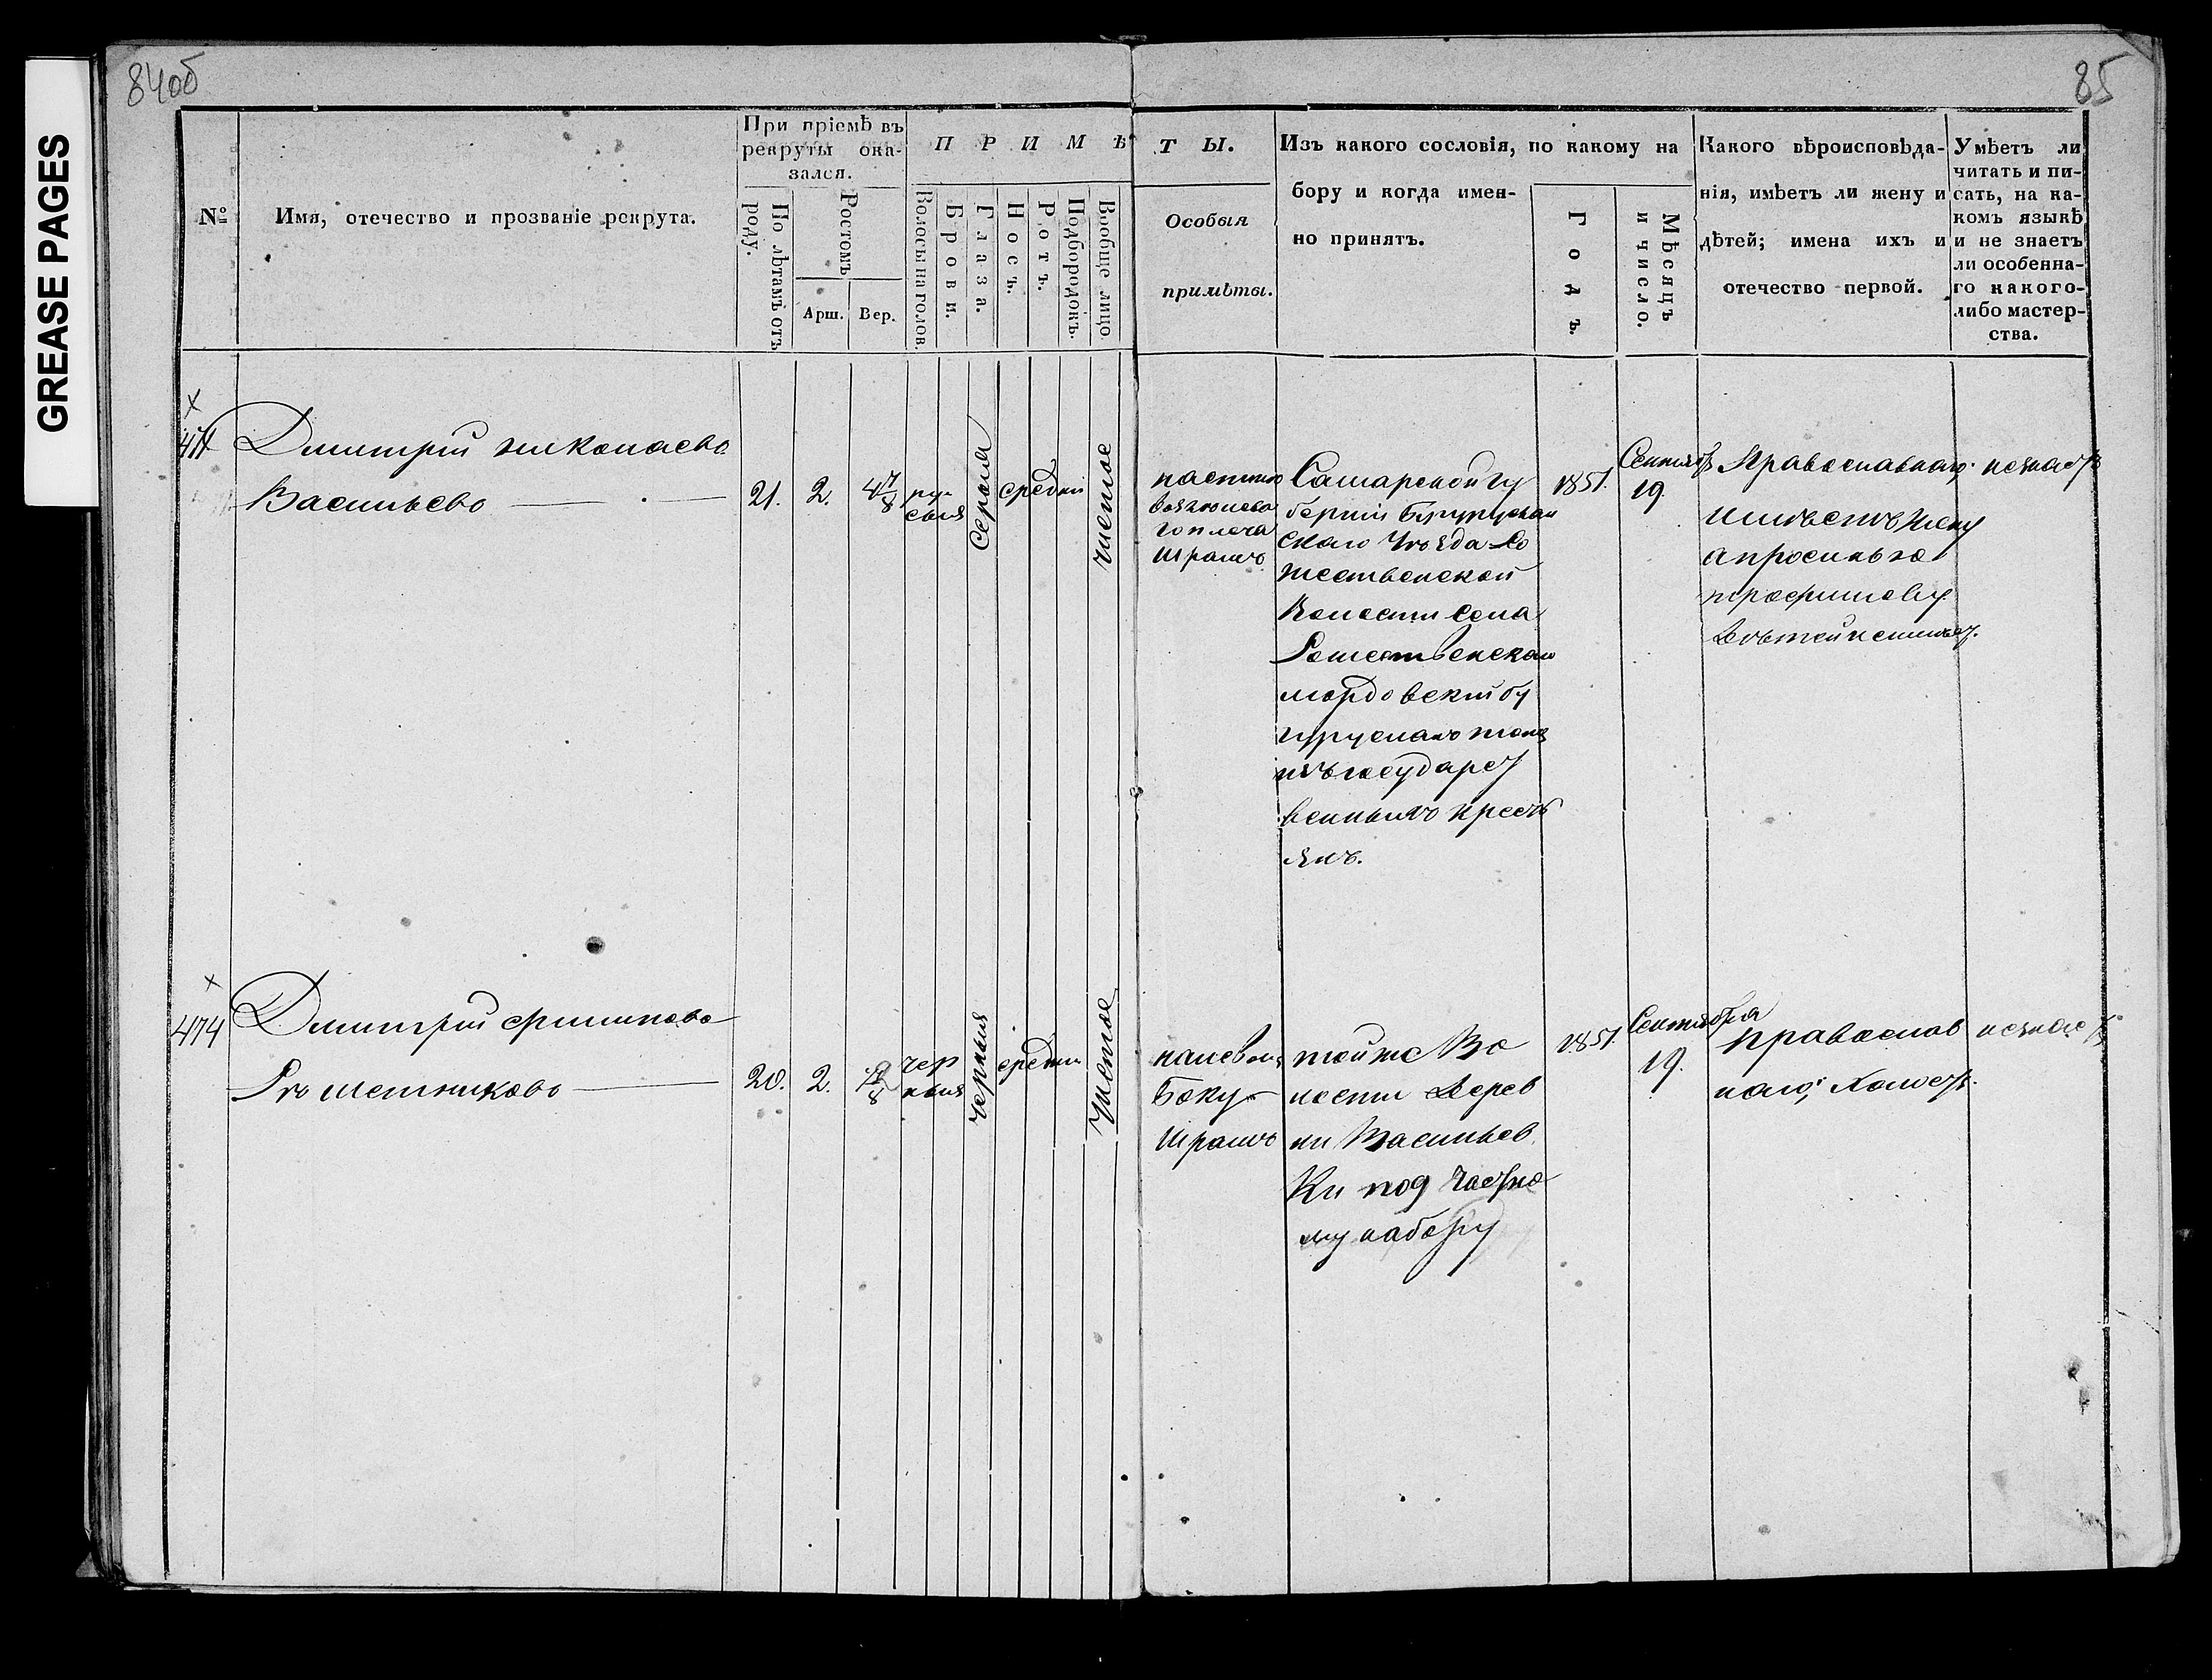 GREASE PAGES
84об
85
№
Имя, отечество и прозваніе рекрута.
При пріемѣ въ
рекруты ока-
зался.
По лѣтамъ отъ
роду.
Ростомъ
Арш.
Вер.
ПРИМѢ
Волосы на голов.
Брови.
Глаза.
Носъ.
Ротъ.
Подбородокъ.
Вообще лицо
ТЫ.
Особыя
примѣты.
Изъ какого сословія, по какому на
бору и когда имен-
но принятъ.
Годъ.
Мѣсяцъ
и число.
Какого вѣроисповѣда-
нія, имѣетъ ли жену и
дѣтей; имена ихъ и
отечество первой.
Умѣетъ ли
читать и пи-
сать, на ка-
комъ языкѣ
и не знаетъ
ли особенна-
го какого-
либо мастер-
ства.
х
Дмитрій николаевъ
Васильевъ
21.
2.
ру-
сыя
Серыя
средніи
чистое
го плеча
Шрамъ
Самарской гу
берніи
скаго Уѣзда Ро
жественской
Волости села
Рожественскаго
мордовскій бу
гурусланъ тожъ
изъ государст
венныхъ кресть
янъ.
1851.
Сентябр
19.
Православнаго
имѣетъ жену
апросинью
трофимову
дѣтей не имѣет.
незнает
х
474
Дмитрій
Рѣшетниковъ
20.
2.
чер
ныя
черныя
средни
чистое
на левом
Боку
Шрамъ
тойже Во
лости Дерев
ни Васильев
Ки под частно
му набору
1851.
Сентября
19.
православ
наго, Холост.
незнает